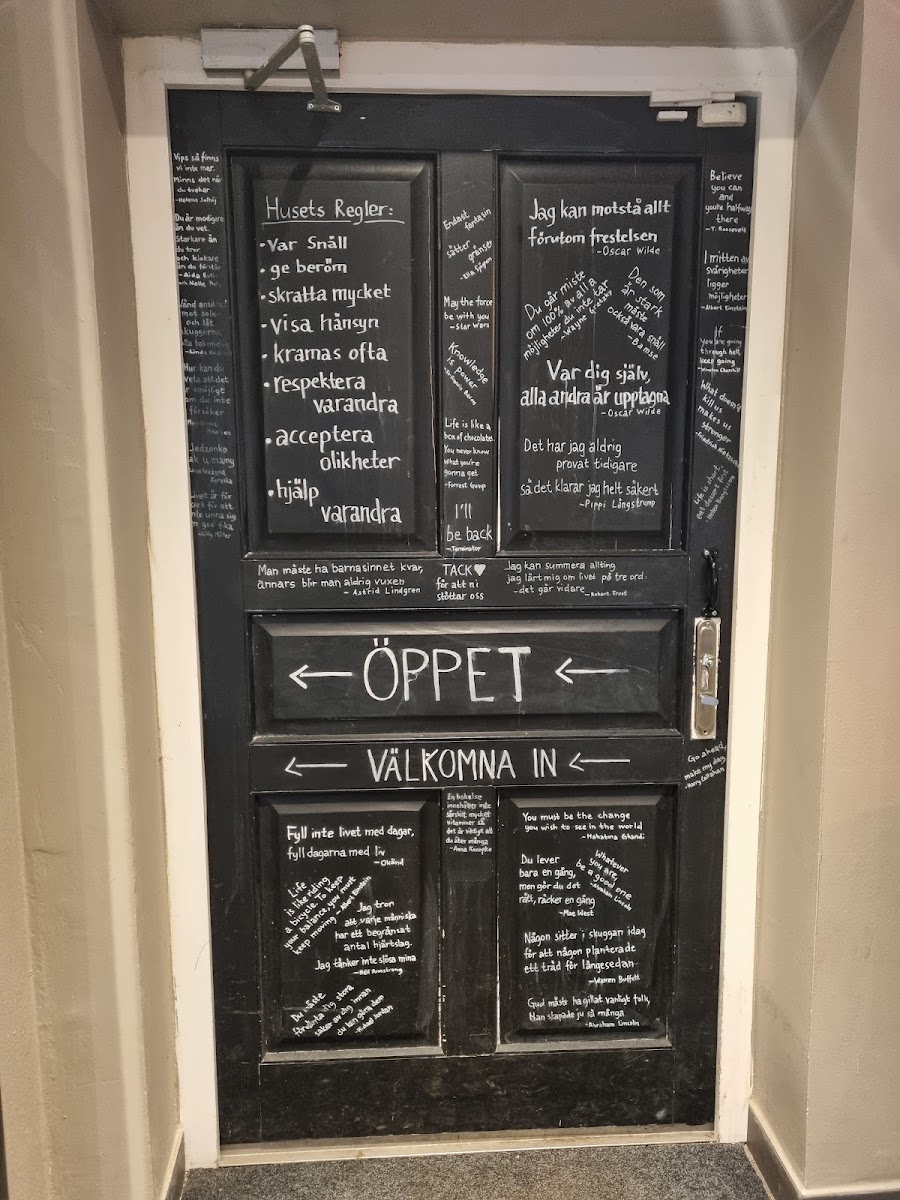 Vips så finns
vi inte mer.
Minns det när
du tvekar
Du är modigare
än du vet.
Starkare än
du tror
och klokare
än du förstår
Husets Regler:
•Var Snäll
•ge beröm
•skratta mycket
•visa hänsyn
•kramas ofta
•respektera
varandra
•acceptera
olikheter
•hjälp
varandra
Endast fantasin
sätter gränser
May the force
be with you
-Star Wars
Knowledge
is power
Life is like a
box of chocolates.
You never know
what you're
gonna get
-Forrest Gump
I'll
be back
-Terminator
Jag kan motstå allt
förutom frestelsen
-Oscar Wilde
Du går miste
om 100% av alla
möjligheter du inte tar
-Wayne Gretzky
Den som
är stark
måste
också vara snäll
-Bamse
Var dig själv,
alla andra är upptagna
-Oscar Wilde
Det har jag aldrig
provat tidigare
så det klarar jag helt säkert
-Pippi Långstrump
Believe
you can
and
you're halfway
there
-T. Roosevelt
I mitten av
svårigheter
ligger
möjligheter
-Albert Einstein
If
you are going
through hell,
keep going
-Winston Churchill
What doesn't
kill us
makes us
stronger
-Friedrich Nietzsche
Life is short,
eat dessert first
Man måste ha barnasinnet kvar,
annars blir man aldrig vuxen
-Astrid Lindgren
TACK♥
för att ni
stöttar oss
Jag kan summera allting
jag lärt mig om livet på tre ord:
-det går vidare
-Robert Frost
← ÖPPET ←
← VÄLKOMNA IN ←
Go ahead,
make my day
-Harry Callahan
Fyll inte livet med dagar,
fyll dagarna med liv
-Okänd
Life
is like riding
a bicycle. To keep
your balance, you must
keep moving -Albert Einstein
Jag tror
att varje människa
har ett begränsat
antal hjärtslag.
Jag tänker inte slösa mina
-Neil Armstrong
Du måste
förvänta dig stora
saker av dig innan
du kan göra dem
-Michael Jordan
En bakelse
innehåller inte
särskilt mycket
vitaminer så
det är viktigt att
du äter många
You must be the change
you wish to see in the world
-Mahatma Ghandi
Du lever
bara en gång,
men gör du det
rätt, räcker en gång
-Mae West
Whatever
you are,
be a good one
-Abraham Lincoln
Någon sitter i skuggan idag
för att någon planterade
ett träd för längesedan
-Warren Buffett
Gud måste ha gillat vanligt folk,
Han skapade ju så många
-Abraham Lincoln